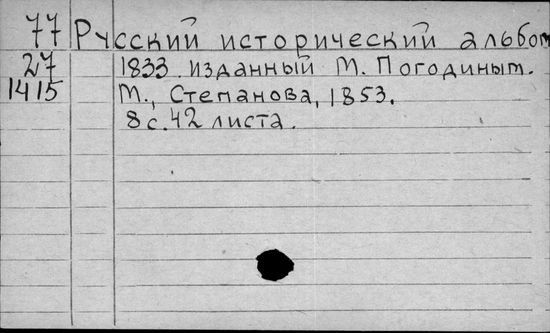 77 Русский исторический альбом
27 1833 изданный М. Погодиным.
1415 М., Степанова, 1853.
8 с. 42 листа.